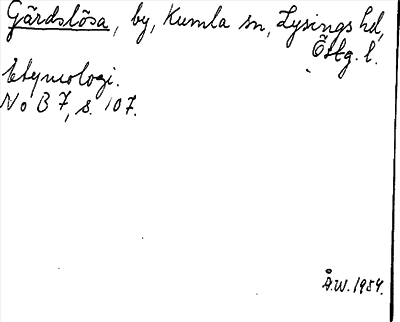 Gärdslösa, by, Kumla sn, Lysings hd,
Östg. l.
Etymologi.
NoB 7, s. 107.
Å.W. 1954.